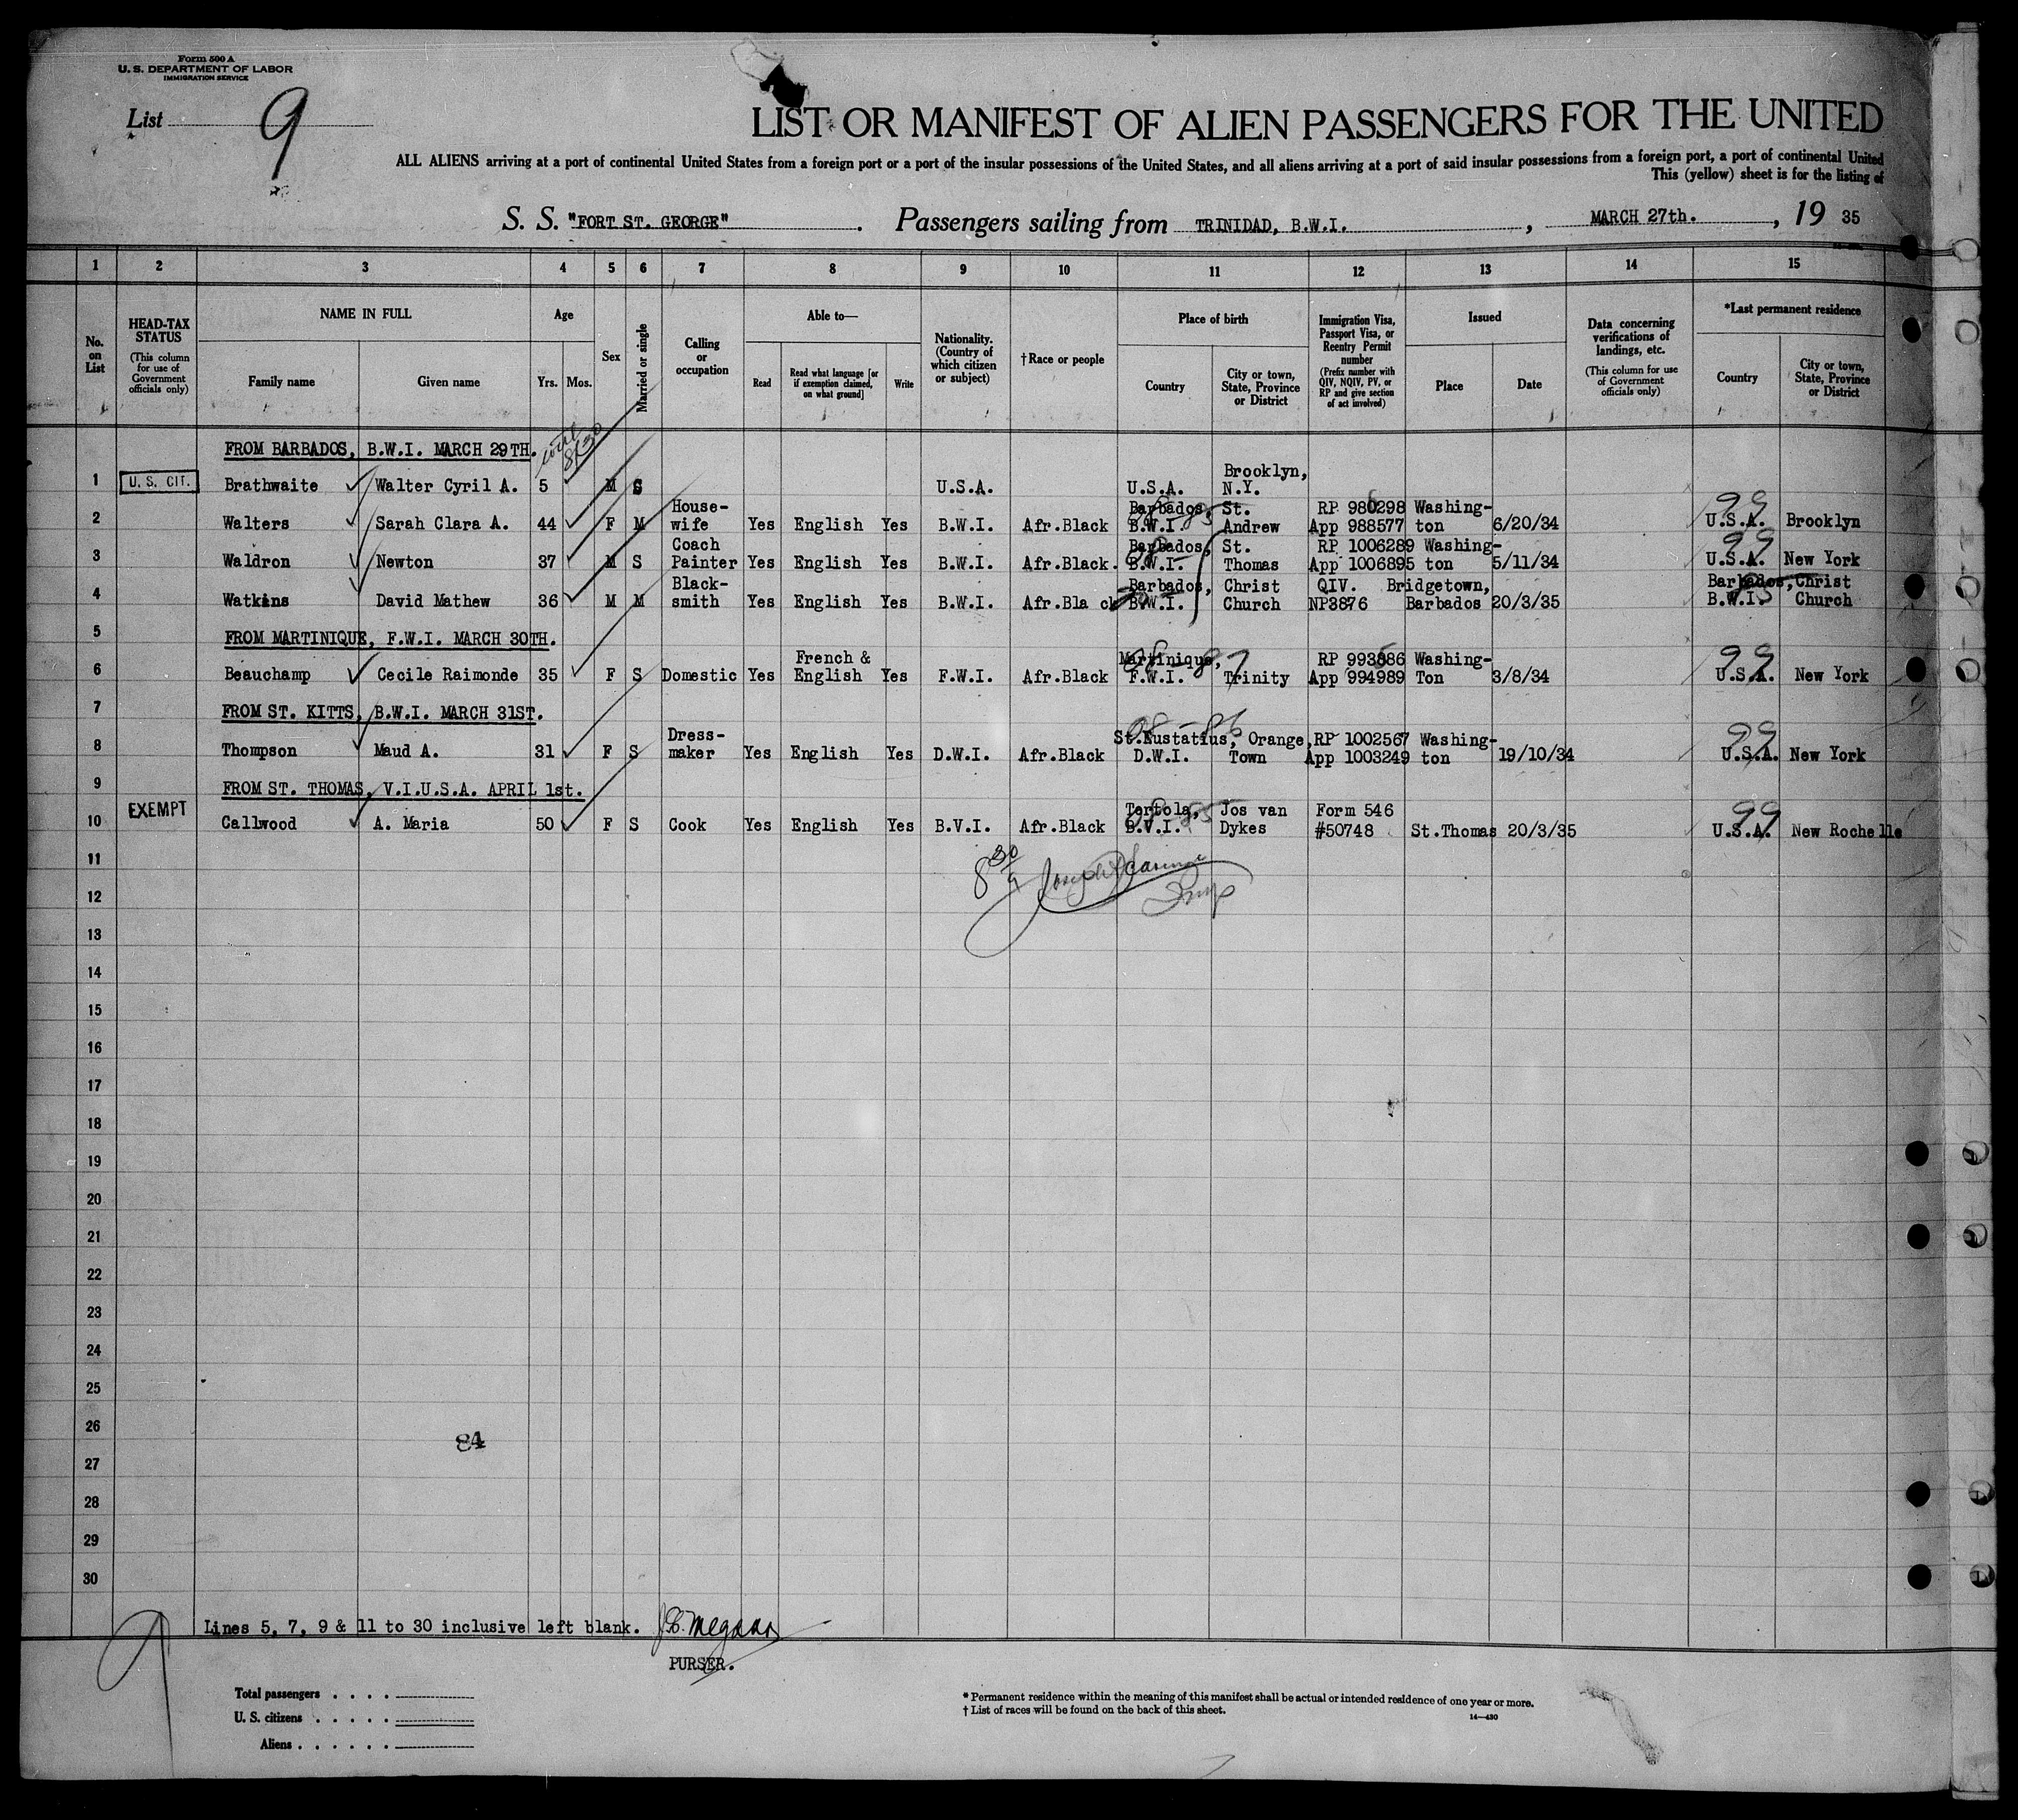 Form 500 A
U. S. DEPARTMENT OF LABOR
IMMIGRATION SERVICE
List 9
LIST OR MANIFEST OF ALIEN PASSENGERS FOR THE UNITED
ALL ALIENS arriving at a port of continental United States from a foreign port or a port of the insular possessions of the United States, and all aliens arriving at a port of said insular possessions from a foreign port, a port of continental United
This (yellow) sheet is for the listing of
S. S. "FORT ST. GEORGE". Passengers sailing from TRINIDAD, B.W.I., MARCH 27th., 19 35
1 2 3 4 5 6 7 8 9 10 11 12 13 14 15
No. on List
HEAD-TAX STATUS (This column for use of Government officials only)
NAME IN FULL Family name Given name
Age Yrs. Mos.
Sex
Married or single
Calling or occupation
Able to— Read Read what language [or if exemption claimed, on what ground] Write
Nationality. (Country of which citizen or subject)
†Race or people
Place of birth Country City or town, State, Province or District
Immigration Visa, Passport Visa, or Reentry Permit number (Prefix number with QIV, NQIV, PV, or RP and give section of act involved)
Issued Place Date
Data concerning verifications of landings, etc. (This column for use of Government officials only)
*Last permanent residence Country City or town, State, Province or District
FROM BARBADOS, B.W.I. MARCH 29TH.
1 U. S. CIT. Brathwaite Walter Cyril A. 5 M S U.S.A. U.S.A. Brooklyn, N.Y.
2 Walters Sarah Clara A. 44 F M House-wife Yes English Yes B.W.I. Afr.Black Barbados, B.W.I. St. Andrew RP 980298 App 988577 Washing-ton 6/20/34 99 U.S.A. Brooklyn
3 Waldron Newton 37 M S Coach Painter Yes English Yes B.W.I. Afr.Black. Barbados, B.W.I. St. Thomas RP 1006289 App 1006895 Washing-ton 5/11/34 99 U.S.A. New York
4 Watkins David Mathew 36 M M Black-smith Yes English Yes B.W.I. Afr.Bla ck Barbados, B.W.I. Christ Church QIV. NP3876 Bridgetown, Barbados 20/3/35 Barbados, B.W.I. Christ Church
5 FROM MARTINIQUE, F.W.I. MARCH 30TH.
6 Beauchamp Cecile Raimonde 35 F S Domestic Yes French & English Yes F.W.I. Afr.Black Martinique, F.W.I. Trinity RP 993886 App 994989 Washing-Ton 3/8/34 99 U.S.A. New York
7 FROM ST. KITTS, B.W.I. MARCH 31ST.
8 Thompson Maud A. 31 F S Dress-maker Yes English Yes D.W.I. Afr.Black St.Eustatius, D.W.I. Orange, Town RP 1002567 App 1003249 Washing-ton 19/10/34 99 U.S.A. New York
9 FROM ST. THOMAS, V.I.U.S.A. APRIL 1st.
10 EXEMPT Callwood A. Maria 50 F S Cook Yes English Yes B.V.I. Afr.Black Tortola, B.V.I. Jos van Dykes Form 546 #50748 St.Thomas 20/3/35 99 U.S.A. New Rochelle
11
12
13
14
15
16
17
18
19
20
21
22
23
24
25
26
84
27
28
29
30
Lines 5, 7, 9 & 11 to 30 inclusive left blank.
PURSER.
9
Total passengers . . . .
U. S. citizens . . . . .
Aliens . . . . . .
* Permanent residence within the meaning of this manifest shall be actual or intended residence of one year or more.
† List of races will be found on the back of this sheet.
14—430